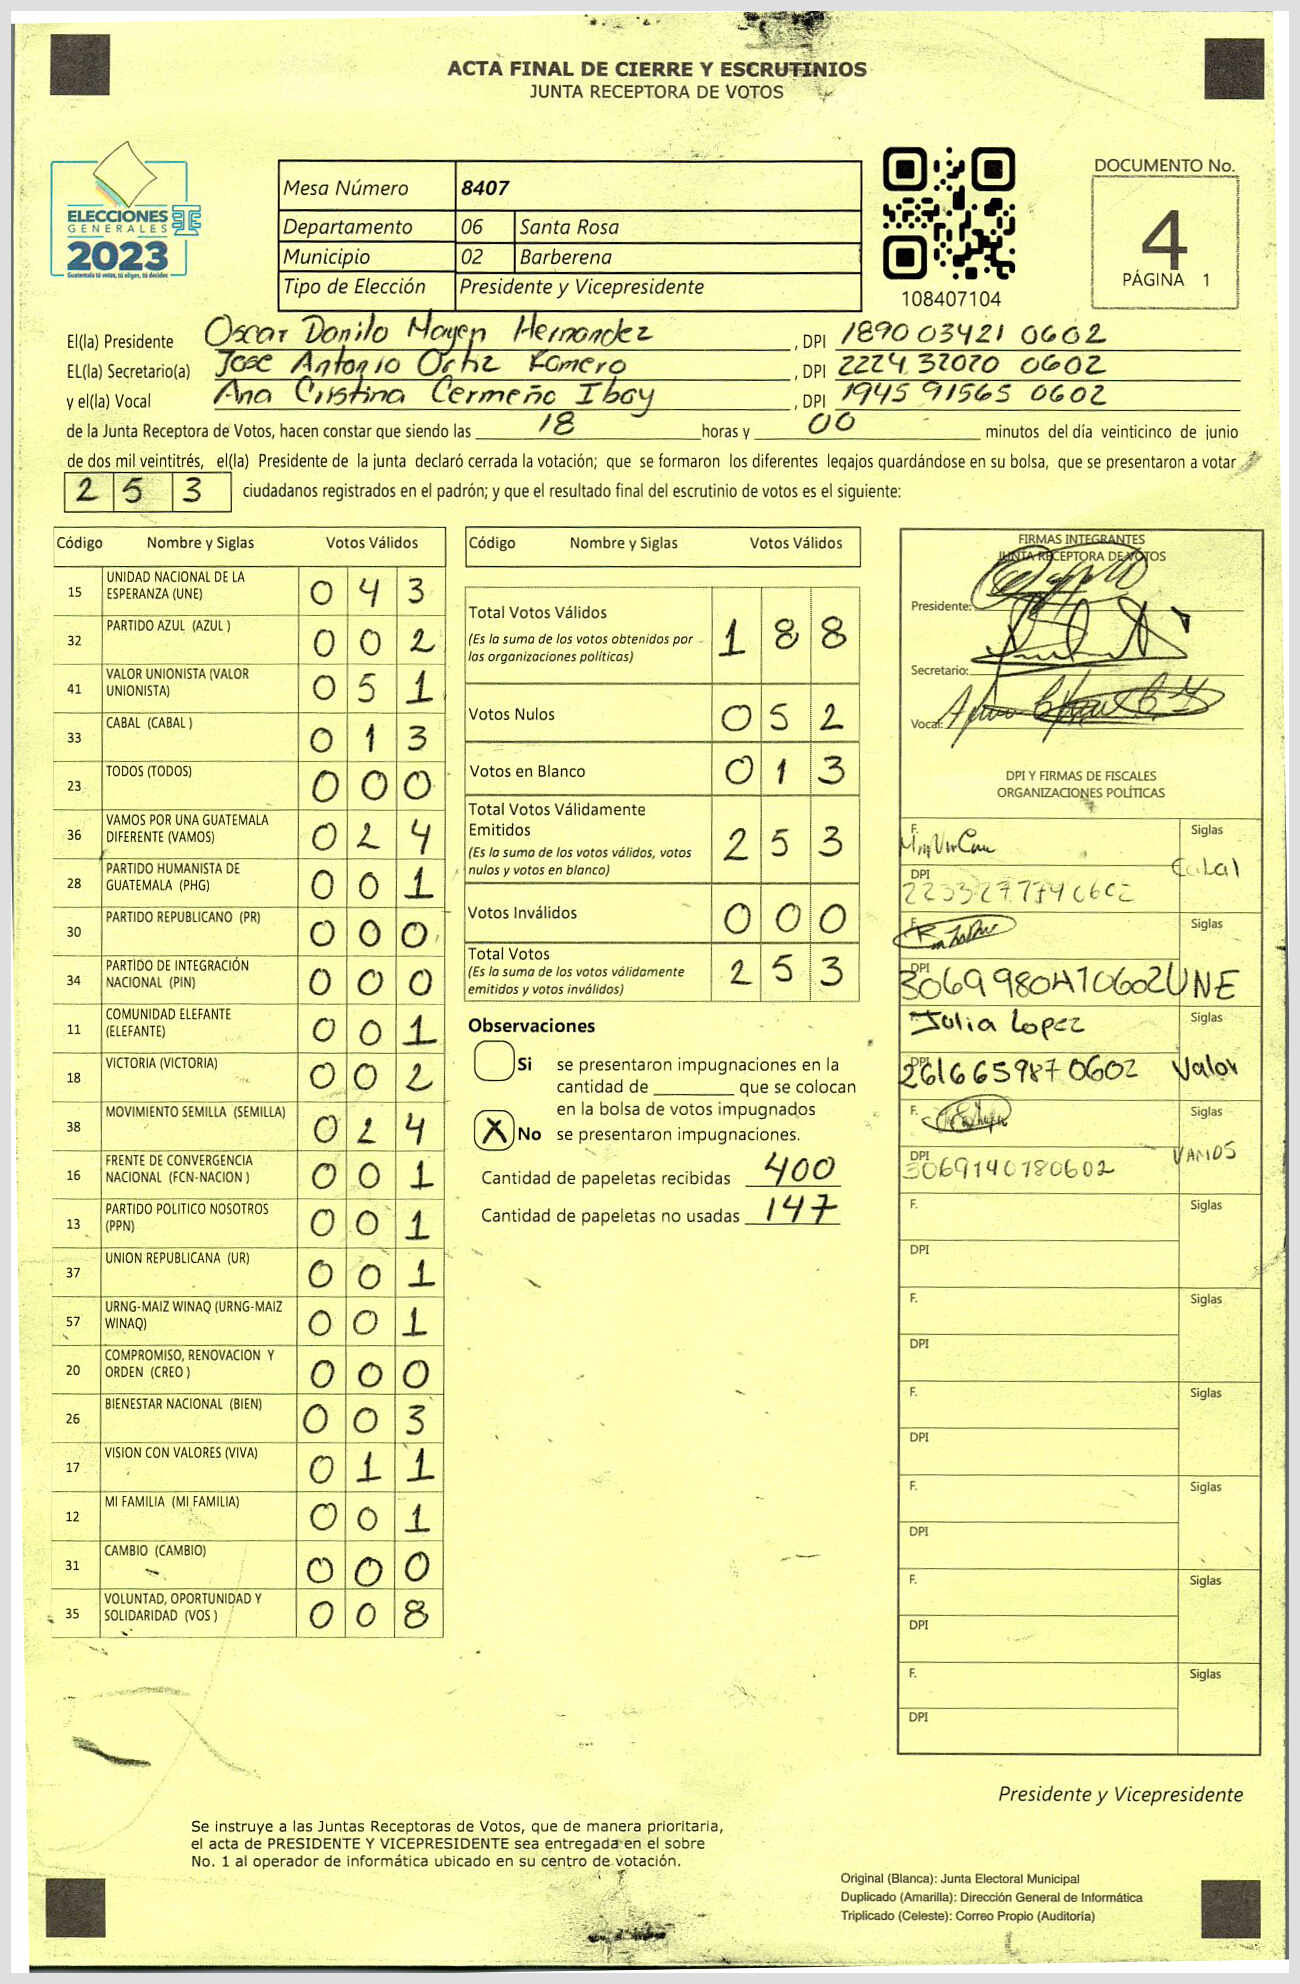 ACTA FINAL DE CIERRE Y ESCRUTINIOS
JUNTA RECEPTORA DE VOTOS
ELECCIONES
GENERALES
2023
Guatemala tú votas, tú eliges, tú decides
Mesa Número 8407
Departamento 06 Santa Rosa
Municipio 02 Barberena
Tipo de Elección Presidente y Vicepresidente
108407104
DOCUMENTO No.
4
PÁGINA 1
El(la) Presidente Oscar Danilo Mayen Hernandez , DPI 1890 03421 0602
EL(la) Secretario(a) Jose Antonio Ortiz Romero , DPI 2224 32020 0602
y el(la) Vocal Ana Cristina Cermeño Iboy , DPI 1945 91565 0602
de la Junta Receptora de Votos, hacen constar que siendo las 18 horas y 00 minutos del día veinticinco de junio
de dos mil veintitrés, el(la) Presidente de la junta declaró cerrada la votación; que se formaron los diferentes legajos guardándose en su bolsa, que se presentaron a votar
2 5 3 ciudadanos registrados en el padrón; y que el resultado final del escrutinio de votos es el siguiente:
Código Nombre y Siglas Votos Válidos
15 UNIDAD NACIONAL DE LA ESPERANZA (UNE) 0 4 3
32 PARTIDO AZUL (AZUL ) 0 0 2
41 VALOR UNIONISTA (VALOR UNIONISTA) 0 5 1
33 CABAL (CABAL ) 0 1 3
23 TODOS (TODOS) 0 0 0
36 VAMOS POR UNA GUATEMALA DIFERENTE (VAMOS) 0 2 4
28 PARTIDO HUMANISTA DE GUATEMALA (PHG) 0 0 1
30 PARTIDO REPUBLICANO (PR) 0 0 0
34 PARTIDO DE INTEGRACIÓN NACIONAL (PIN) 0 0 0
11 COMUNIDAD ELEFANTE (ELEFANTE) 0 0 1
18 VICTORIA (VICTORIA) 0 0 2
38 MOVIMIENTO SEMILLA (SEMILLA) 0 2 4
16 FRENTE DE CONVERGENCIA NACIONAL (FCN-NACION ) 0 0 1
13 PARTIDO POLITICO NOSOTROS (PPN) 0 0 1
37 UNION REPUBLICANA (UR) 0 0 1
57 URNG-MAIZ WINAQ (URNG-MAIZ WINAQ) 0 0 1
20 COMPROMISO, RENOVACION Y ORDEN (CREO ) 0 0 0
26 BIENESTAR NACIONAL (BIEN) 0 0 3
17 VISION CON VALORES (VIVA) 0 1 1
12 MI FAMILIA (MI FAMILIA) 0 0 1
31 CAMBIO (CAMBIO) 0 0 0
35 VOLUNTAD, OPORTUNIDAD Y SOLIDARIDAD (VOS ) 0 0 8
Código Nombre y Siglas Votos Válidos
Total Votos Válidos 1 8 8
(Es la suma de los votos obtenidos por
las organizaciones políticas)
Votos Nulos 0 5 2
Votos en Blanco 0 1 3
Total Votos Válidamente
Emitidos 2 5 3
(Es la suma de los votos válidos, votos
nulos y votos en blanco)
Votos Inválidos 0 0 0
Total Votos 2 5 3
(Es la suma de los votos válidamente
emitidos y votos inválidos)
Observaciones
Si se presentaron impugnaciones en la
cantidad de ________ que se colocan
en la bolsa de votos impugnados
X No se presentaron impugnaciones.
Cantidad de papeletas recibidas 400
Cantidad de papeletas no usadas 147
FIRMAS INTEGRANTES
JUNTA RECEPTORA DE VOTOS
Presidente:
Secretario:
Vocal:
DPI Y FIRMAS DE FISCALES
ORGANIZACIONES POLÍTICAS
F. Siglas
Cabal
DPI 2233277740602
F. Siglas
DPI UNE
F. Julia Lopez Siglas
DPI 261665987 0602 Valor
F. Siglas
DPI 3069140780602 VAMOS
F. Siglas
DPI
F. Siglas
DPI
F. Siglas
DPI
F. Siglas
DPI
F. Siglas
DPI
F. Siglas
DPI
Presidente y Vicepresidente
Se instruye a las Juntas Receptoras de Votos, que de manera prioritaria,
el acta de PRESIDENTE Y VICEPRESIDENTE sea entregada en el sobre
No. 1 al operador de informática ubicado en su centro de votación.
Original (Blanca): Junta Electoral Municipal
Duplicado (Amarilla): Dirección General de Informática
Triplicado (Celeste): Correo Propio (Auditoría)